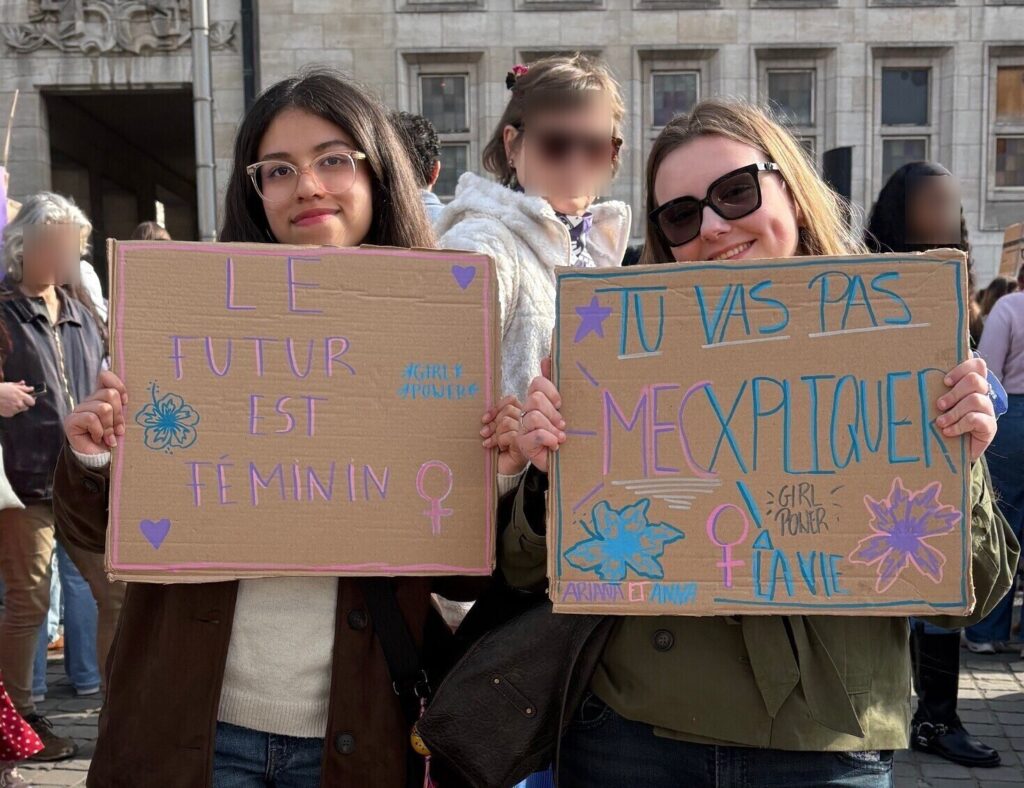 LE
FUTUR
EST
FÉMININ
GIRL
POWER
TU VAS PAS
MECXPLIQUER
LA VIE
GIRL
POWER
ARIANA ET ANNA